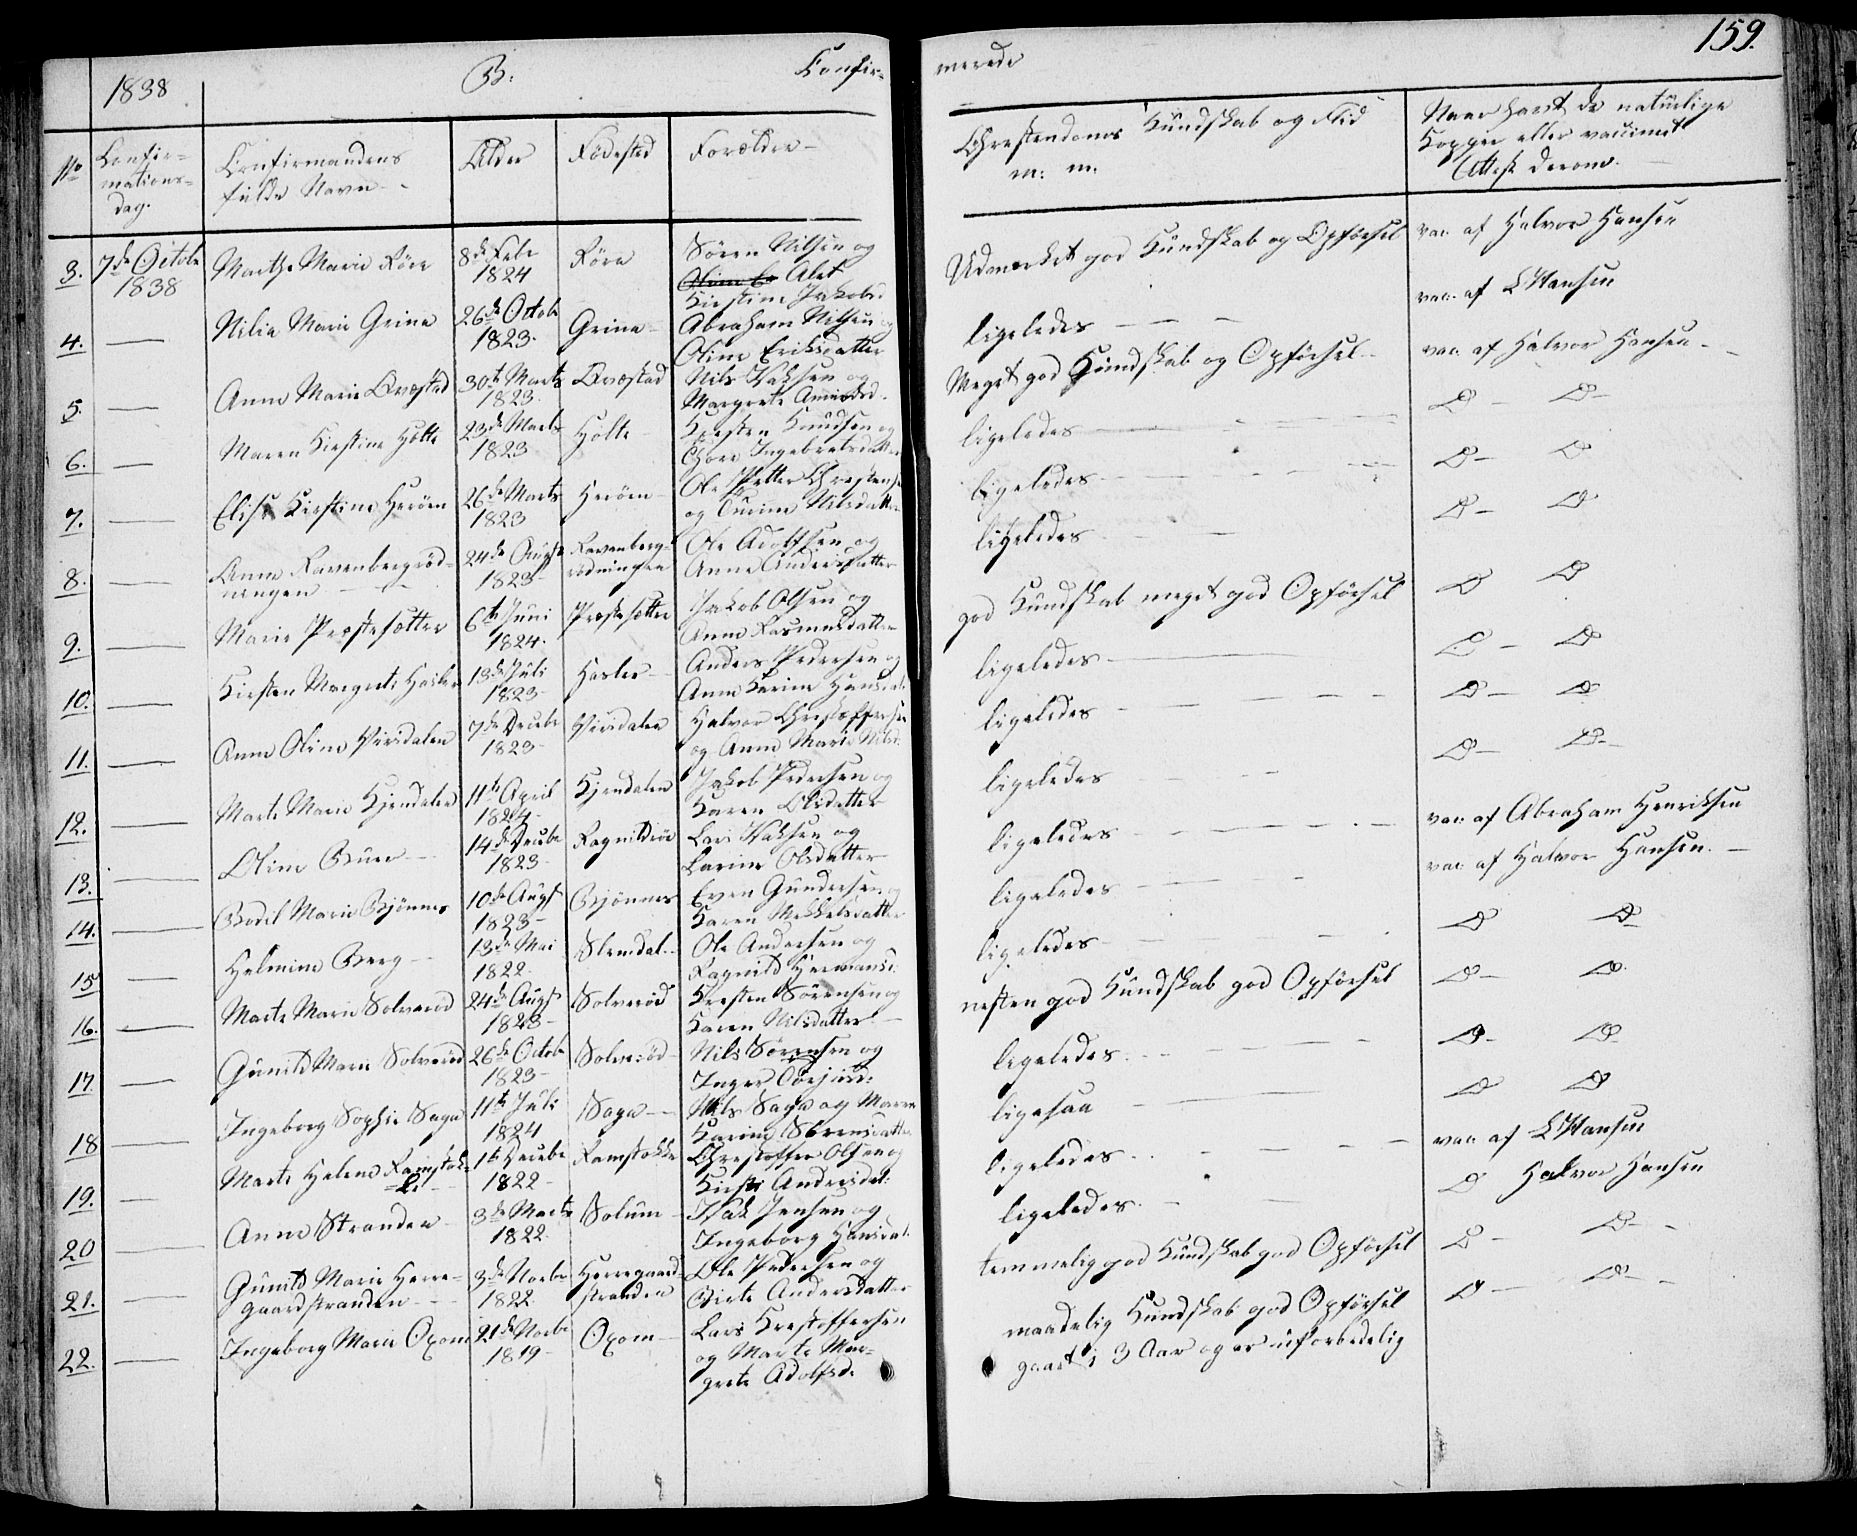 159.
1838 B: Confir- merede
No Confir-
mations-
dag. Confirmandens
fulde Navn Alder Fødested Forældre Christendoms Kundskab og Flid
m: m. Naar havt de naturlige
Kopper eller vaccineret
Attest derom.
3. 7de Octobr
1838 Marthe Marie Röre 8de Febr
1824 Röra Sören Nilsen og
Alet
Kirstine Jakobsd Udmerket god Kundskab og Opförsel vac. af Halvor Hansen
4. — Nilia Marie Grina 26de Octobr
1823. Grina Abraham Nilsen og
Oline Eriksdatter ligeledes — — — vac. af L Hansen
5. — Anne Marie Qvæstad 30te Marts
1823. Qvæstad Nils Isaksen og
Margrete Meget god Kundskab og Opförsel vac. af Halvor Hansen
6. — Maren Kirstine Holte 23de Marts
1823 Holte Kirsten Knudsen og
Thore Ingebretsdatter ligeledes — D — D —
7. — Elise Kirstine Heröen 26de Marts
1823 Heröen Ole Petter Christensen
og Nilsdatter ligeledes — D — D
8. — Anne Ravenbergröd-
ningen 24de Augst
1823 Ravenberg-
rödningen Ole Adolfsen og
Anne Andersdatter ligeledes D — D
9. — Marie Prestesætter 6te Juni
1824. Prestesætter Jakob Olsen og
Anne Rasmusdatter god Kundskab meget god Opförsel D D
10. — Kirsten Margrete Hasler 13de Juli
1823 Hasler Anders Pedersen og
Anne Karine Hansdat ligeledes — D — D
11. — Anne Oline Virsdalen 7de Decebr
1823 Virsdalen Halvor Christoffersen
og Anne Marie Nilsd: ligeledes — D — D
12. — Marte Marie Kjendalen 11te April
1824 Kjendalen Jakob Pedersen og
Karen Olsdatter ligeledes D — D —
13. — Oline Buer 14de Decebr
1823 Ragnildröe Lars Isaksen og
Karine Olsdatter ligeledes vac. af Abraham Henriksen
14. — Bodil Marie Bjönnes 10de Augst
1823 Bjönnes Even Gundersen og
Karen Mikkelsdatter ligeledes vac. af Halvor Hansen.
15 — Helmine Berg 13de Mai
1822. Slemdal Ole Andersen og
Ragnild Hermansd: ligeledes D D
16. — Marte Marie Solveröd 24de Augst
1823 Solveröd Kresten Sörensen og
Karen Nilsdatter nesten god Kundskab god Opförsel D — D.
17. — Gunild Marie Solveröd 26de Octobr
1823 Solveröd Nils Sörensen og
Inger ligeledes D — D
18 — Ingeborg Sophie Saga 11te Juli
1824 Saga Nils Saga og Maren
Karine Sörensdatter ligesaa D D
19. — Marte Helene Ramstok-
ke 1te Decebr
1822 Ramstokke Christoffer Olsen og
Kirsti Andersdat: ligeledes vac. af L Hansen
20 — Anne Stranden 3de Marts
1822 Solum Isak Jensen og
Ingeborg Hansdat: ligeledes D Halvor Hansen
21. — Gunild Marie Herre-
gaardstranden 3de Novbr
1822. Herregaard-
stranden Ole Pedersen og
Birte Andersdatter temmelig god Kundskab god Opförsel D — D —
22. — Ingeborg Marie Oxom 21de Novbr
1819 Oxom Lars Kristoffersen
og Marte Mar-
grete Adolfsd. maadelig Kundskab god Opförsel
gaaet i 3 Aar og er uforbedelig D — D —